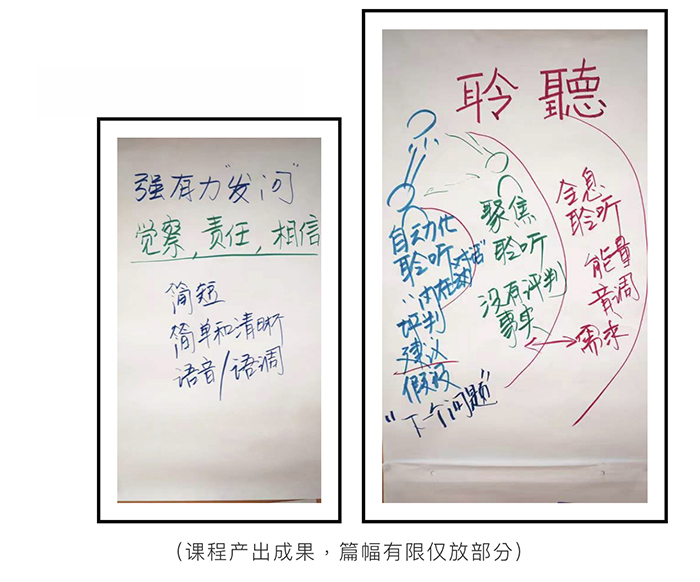 强有力"发问"
觉察,责任,相信
简短
简单和清晰
语音/语调
聆聽
自动化
聆听
"内在对话"
评判
建议
假设
"下一个问题"
聚焦
聆听
没有评判
事实
全息
聆听
能量
音调
需求
（课程产出成果，篇幅有限仅放部分）